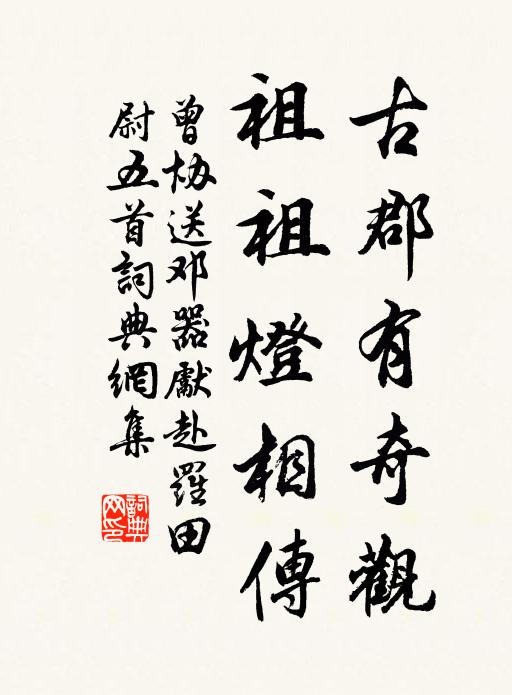 古郡有奇觀
祖祖燈相傳
曾协送邓器獻赴羅田
尉五首詞典網集
詞典
网印